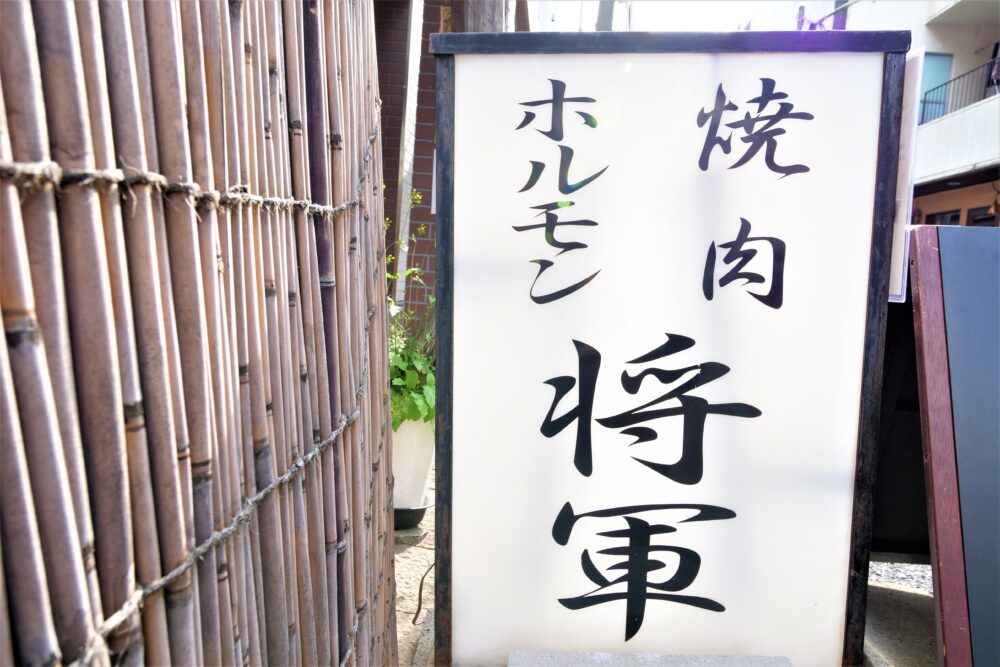 焼肉
ホルモン
将軍